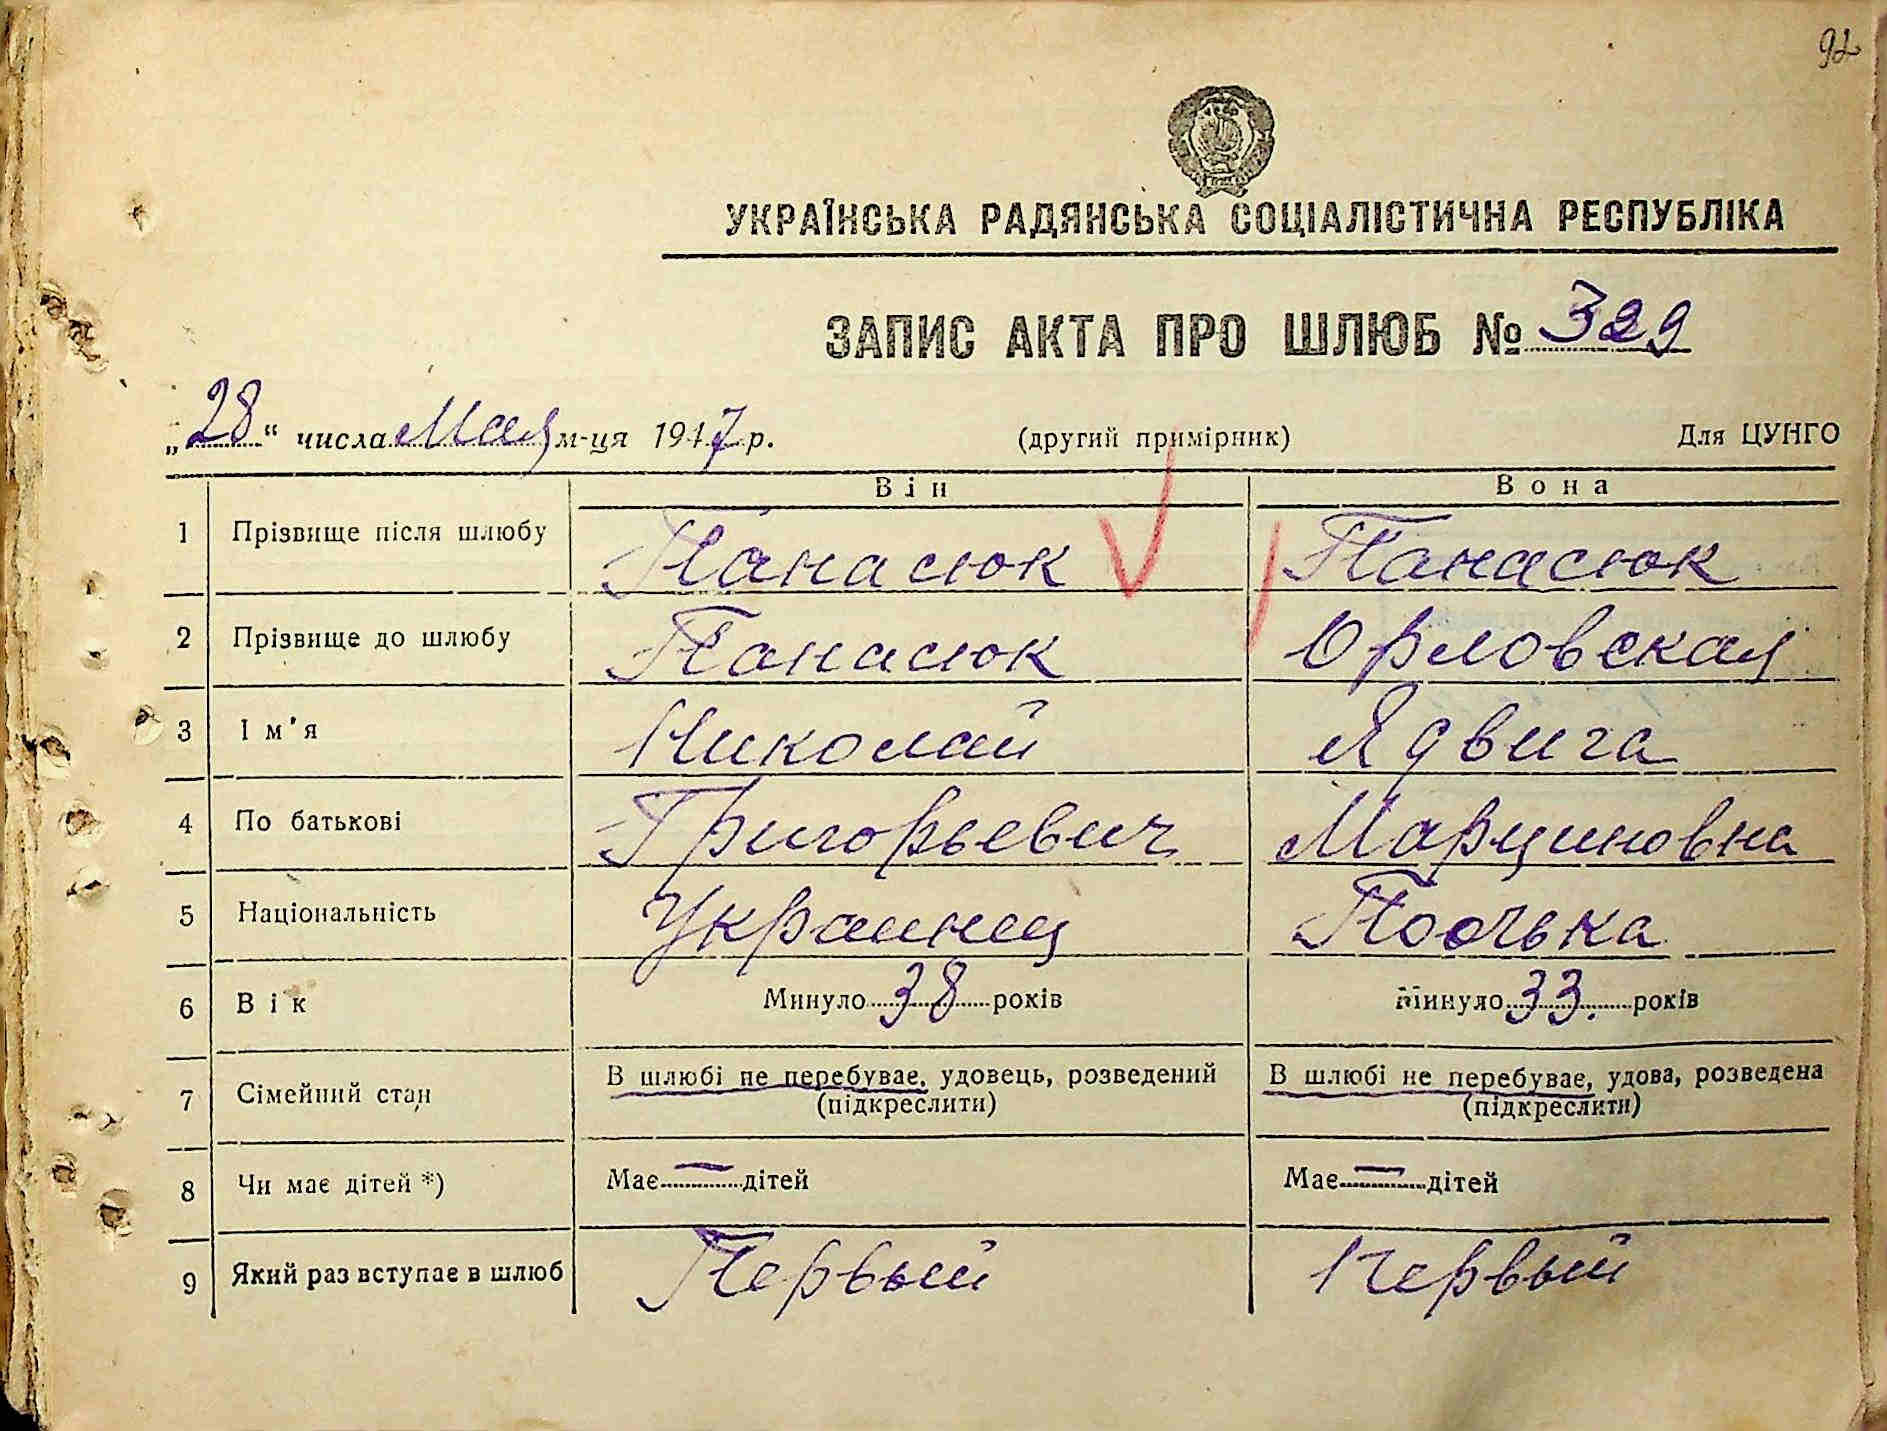 92
УКРАЇНСЬКА РАДЯНСЬКА СОЦІАЛІСТИЧНА РЕСПУБЛІКА
ЗАПИС АКТА ПРО ШЛЮБ № 329
„28“ числа Мая м-ця 1947 р. (другий примірник) Для ЦУНГО
Він Вона
1 Прізвище після шлюбу Панасюк Панасюк
2 Прізвище до шлюбу Панасюк Орловская
3 Ім'я Николай Ядвига
4 По батькові Григорьевич Марциновна
5 Національність Украинец Полька
6 Вік Минуло 38 років Минуло 33 років
7 Сімейний стан В шлюбі не перебуває, удовець, розведений В шлюбі не перебуває, удова, розведена
(підкреслити) (підкреслити)
8 Чи має дітей *) Має — дітей Має — дітей
9 Який раз вступає в шлюб Первый Первый